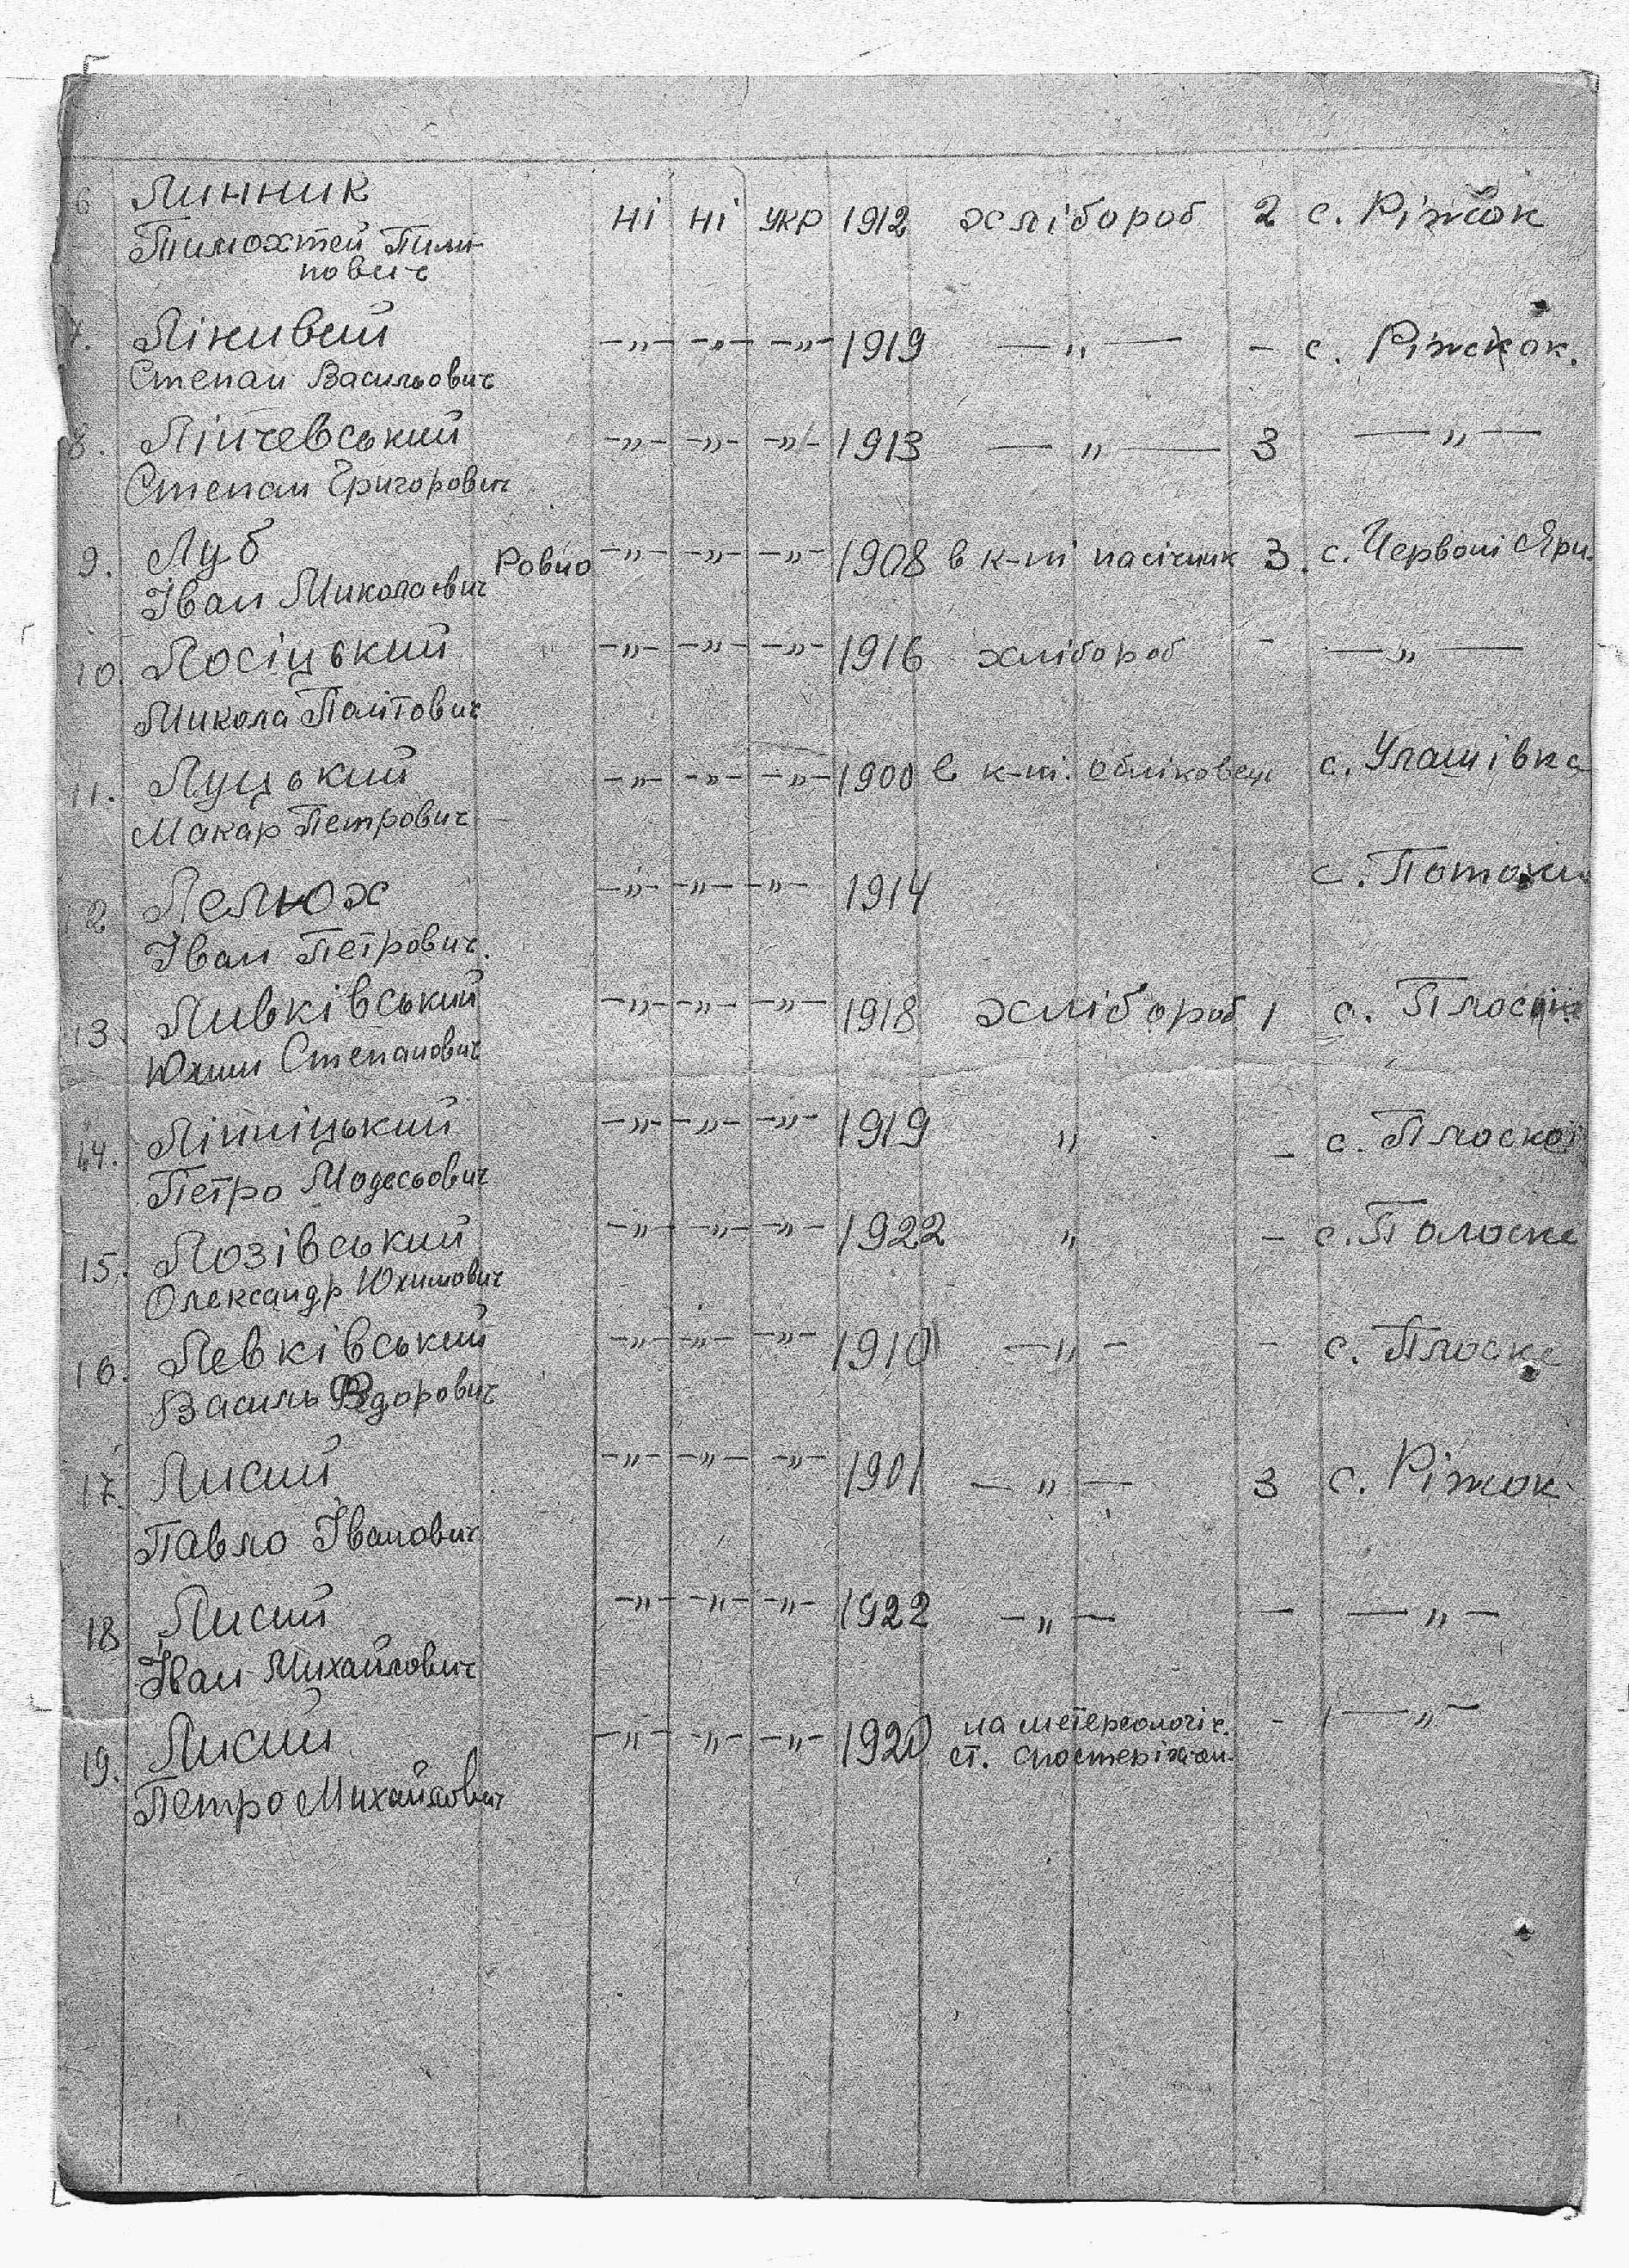 6 Линник ні ні укр 1912 хлібороб 2 с. Ріжок
Тимохтей Пили-
пович
7. Лінивий —„— —„— —„— 1919 —„— – с. Ріжок.
Степан Васильович
8. Лінчевський —„— —„— —„— 1913 —„— 3 —„—
Степан Григорович
9. Луб Ровно —„— —„— —„— 1908 в к-ті пасічник 3. с. Червоні Яри.
Іван Миколаєвич
10. Лосіцький —„— —„— —„— 1916 хлібороб – —„—
Микола
11. Луцький —„— —„— —„— 1900 в к-ті. обліковець с. Улашівка
Макар Петрович
12 Лелюх —„— —„— —„— 1914 с. Потоки
Іван Петрович.
13. Livківський —„— —„— —„— 1918 хлібороб 1 с. Плоске
Юхим Степанович
14. Лінніцький —„— —„— —„— 1919 „ – с. Плоскої
Петро Модесьович
15. Лозівський —„— —„— —„— 1922 „ – с. Полоске
Олександр Юхимович
16. Левківський —„— —„— —„— 1910 —„— – с. Плоске
Василь Федорович
17. Лисий —„— —„— —„— 1901 —„— 3 с. Ріжок
Павло Іванович
18 Лисий —„— —„— —„— 1922 —„— — —„—
Іван Михайлович
19. Лисий —„— —„— —„— 1920 на метереологіч. – —„—
ст. спостерігач
Петро Михайлович